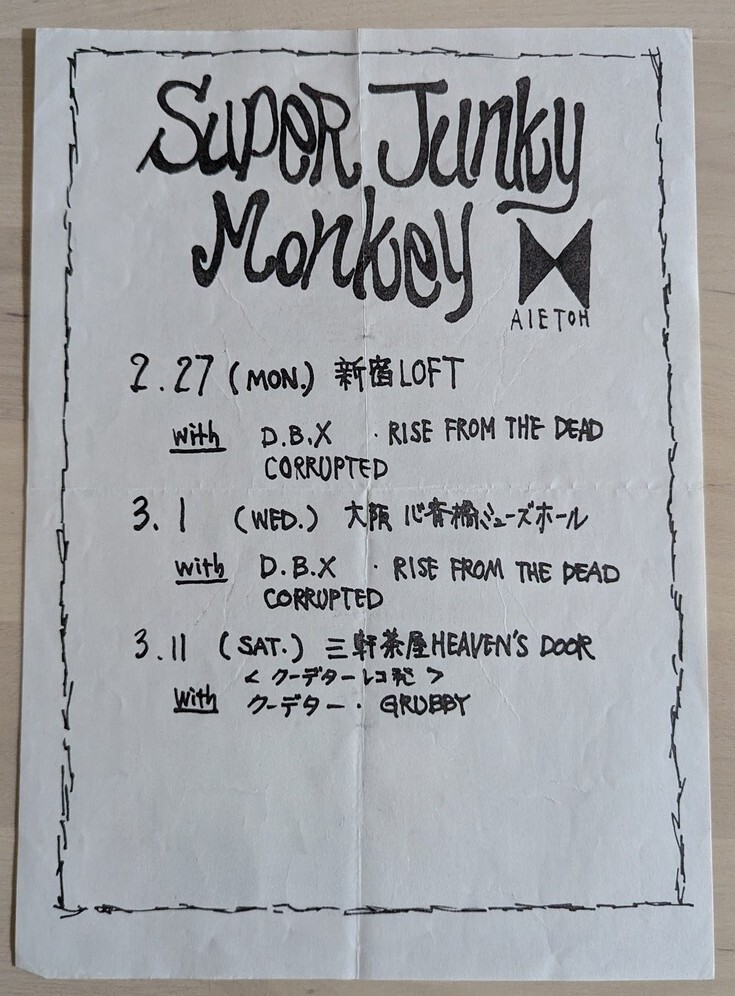 Super Junky
Monkey
AIETOH
2.27 (MON.) 新宿LOFT
with D.B.X ・RISE FROM THE DEAD
CORRUPTED
3.1 (WED.) 大阪 心斎橋ミューズホール
with D.B.X ・RISE FROM THE DEAD
CORRUPTED
3.11 (SAT.) 三軒茶屋HEAVEN'S DOOR
<クーデターレコ発>
with クーデター・GRUBBY